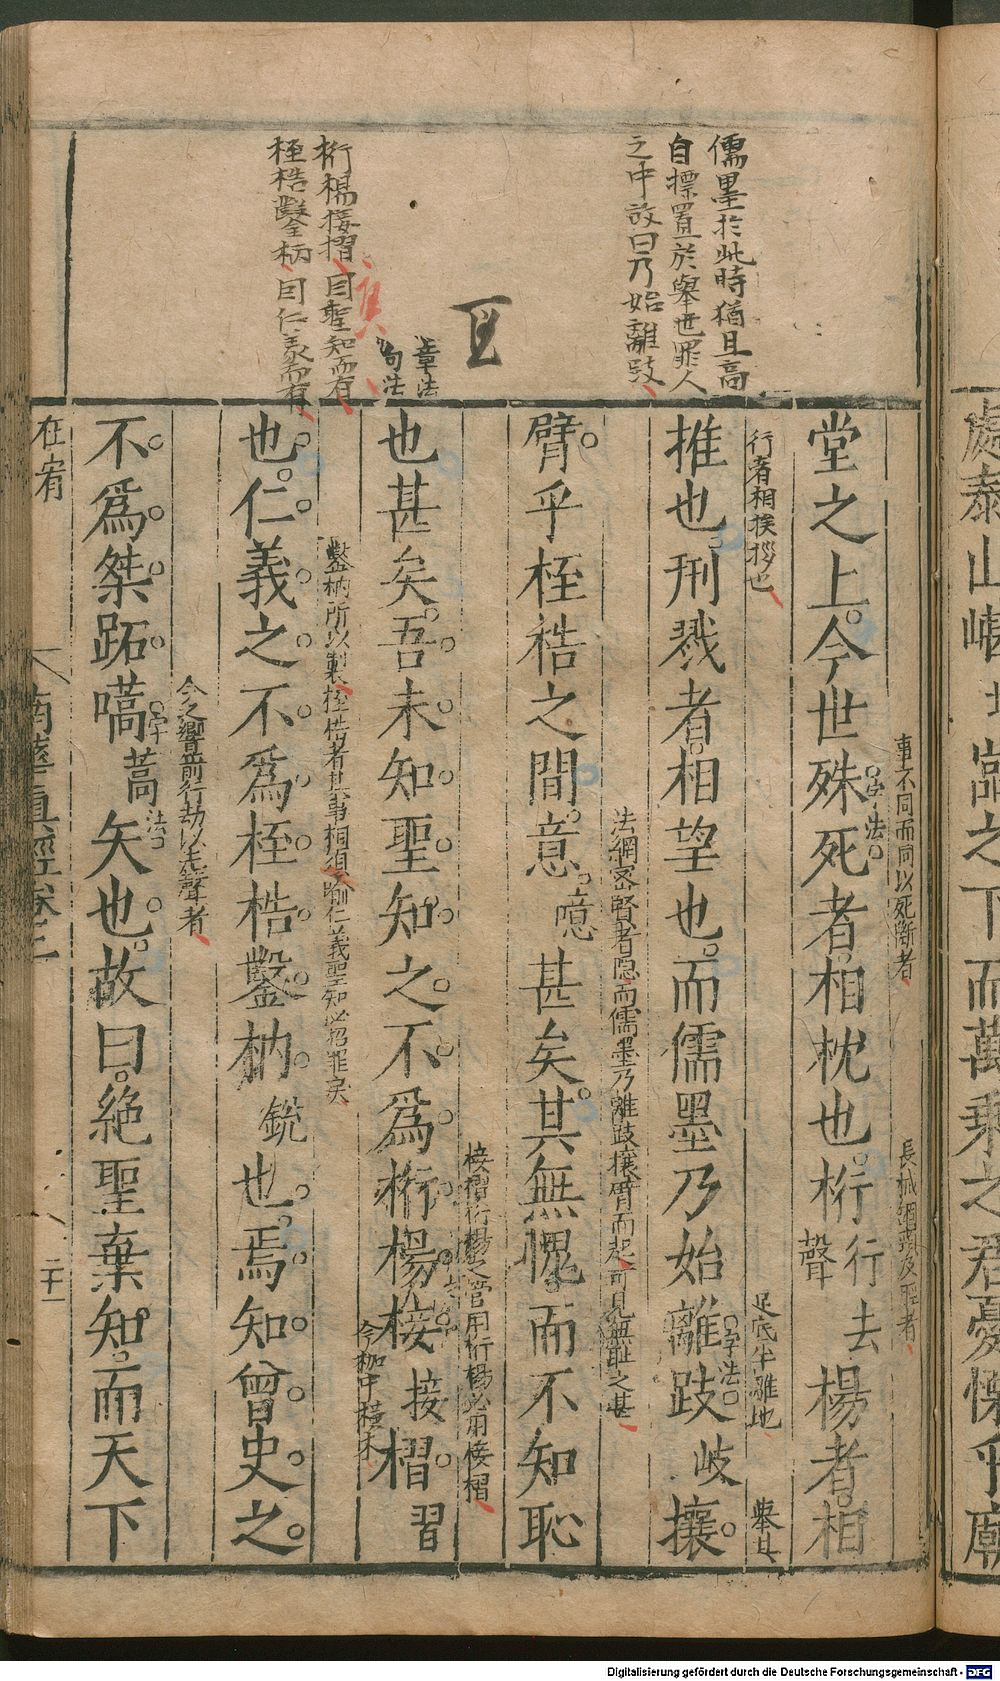 處泰山嵁
之下而萬乘之君憂慄乎廟
儒墨於此時猶且高
自標置於舉世罪人
之中故曰乃始離跂
章法
句法
桁楊椄摺因聖知而有
桎梏鑿枘因仁義而有
事不同而同以死斷者
堂之上今世殊死者相枕也桁行去聲楊者相
字法
行者相挨拶也
足底半離地
舉其
推也刑戮者相望也而儒墨乃始離跂岐攘
字法
法網密賢者隱而儒墨乃離跂攘臂而起可見無恥之甚
臂乎桎梏之間意噫甚矣其無愧而不知恥
椄摺桁楊之管用桁楊必用椄摺
也甚矣吾未知聖知之不爲桁楊椄接摺習
今枷中橫木
鑿枘所以製桎梏者其事相須喻仁義聖知必招罪戾
也仁義之不爲桎梏鑿枘銳也焉知曾史之
今之響箭行劫以走聲者
不爲桀跖嚆蒿矢也故曰絕聖棄知而天下
字法
在宥
南華真經卷三
二十一
Digitalisierung gefördert durch die Deutsche Forschungsgemeinschaft - DFG